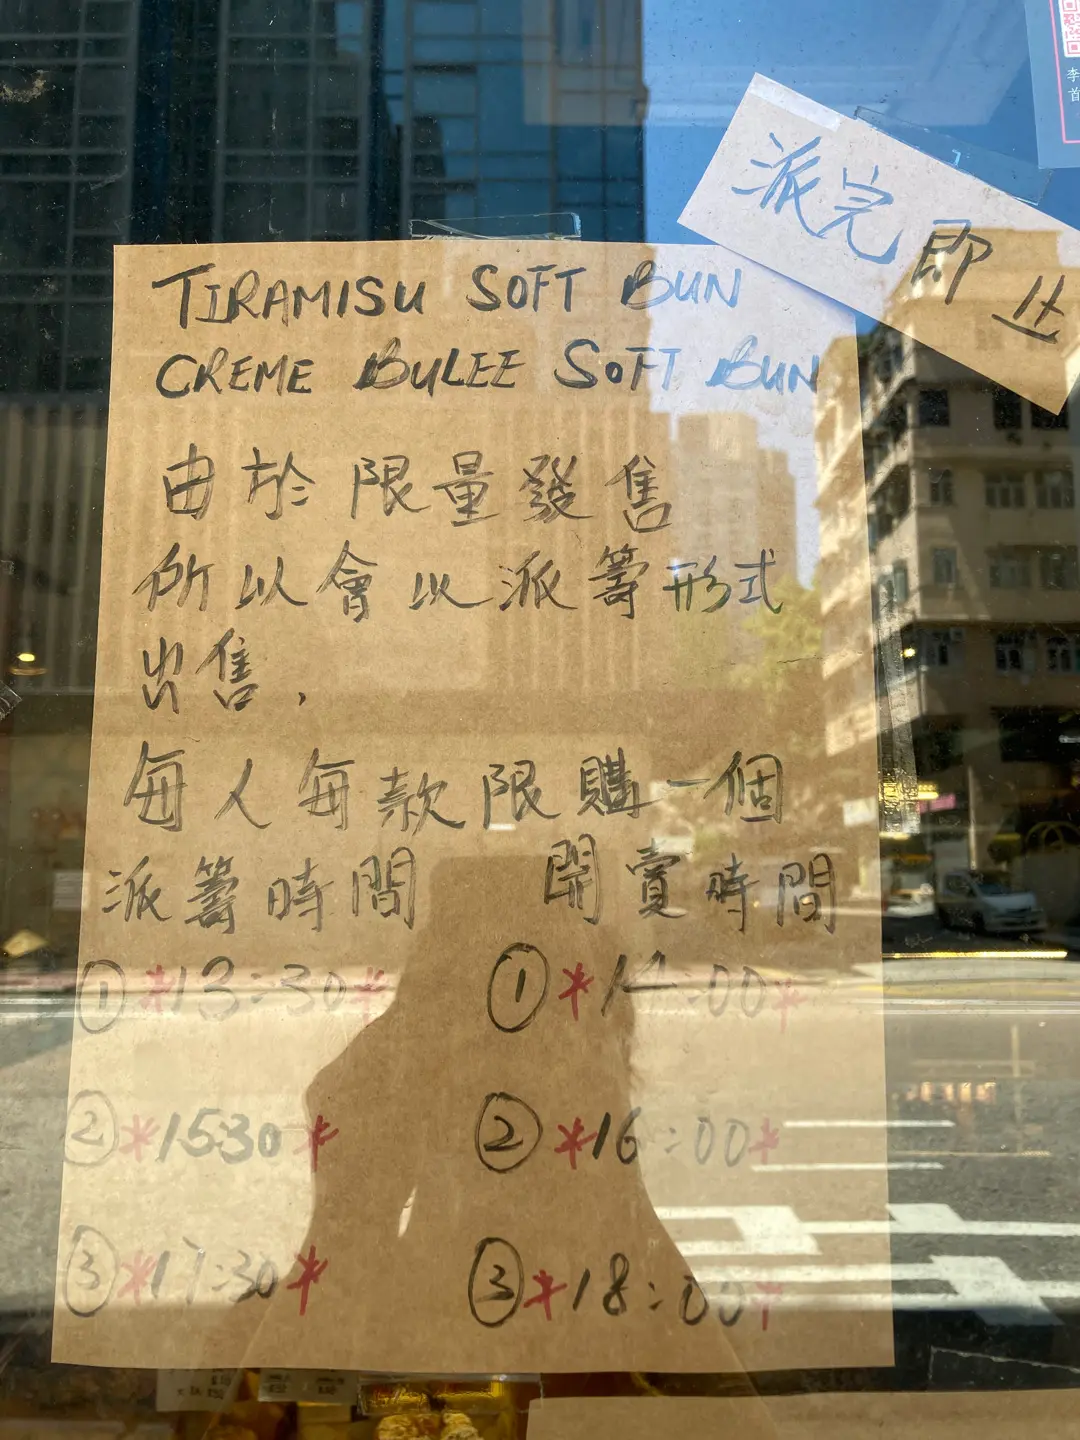 派完即止
TIRAMISU SOFT BUN
CREME BULEE SOFT BUN
由於限量發售
所以會以派籌形式
出售,
每人每款限購一個
派籌時間 開賣時間
① *13:30* ① *14:00*
② *1530* ② *16:00*
③ *17:30* ③ *18:00*
李
首